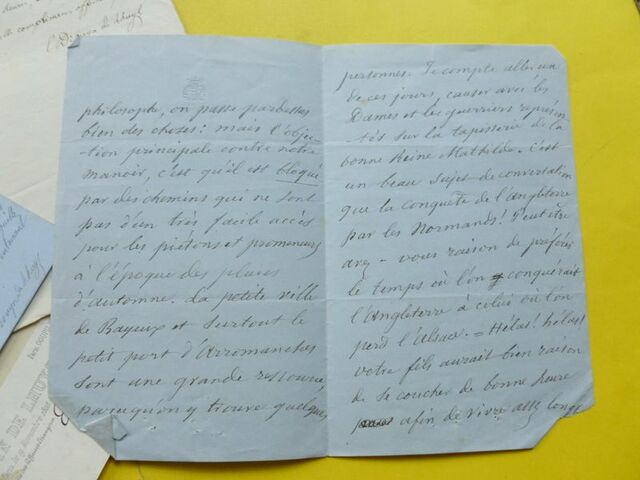 philosophe, on passe par dessus
bien des choses: mais l'objec-
tion principale contre notre
manoir, c'est qu'il est bloqué
par des chemins qui ne sont
pas d'un très facile accès
pour les piétons et promeneurs
à l'époque des pluies
d'automne. La petite ville
de Bayeux et surtout le
petit port d'Arromanches
sont une grande ressource,
parcequ'on y trouve quelques
personnes. Je compte aller un
de ces jours, causer avec les
Dames et les guerriers représen
tés sur la tapisserie de la
bonne Reine Mathilde. C'est
un beau sujet de conversation
que la conquête de l'Angleterre
par les Normands! Peut être
avez-vous raison de préférer
le temps où l'on conquérait
l'Angleterre à celui où l'on
perd l'Alsace. = Hélas! hélas!
votre fils aurait bien raison
de se coucher de bonne heure
afin de vivre assez longt